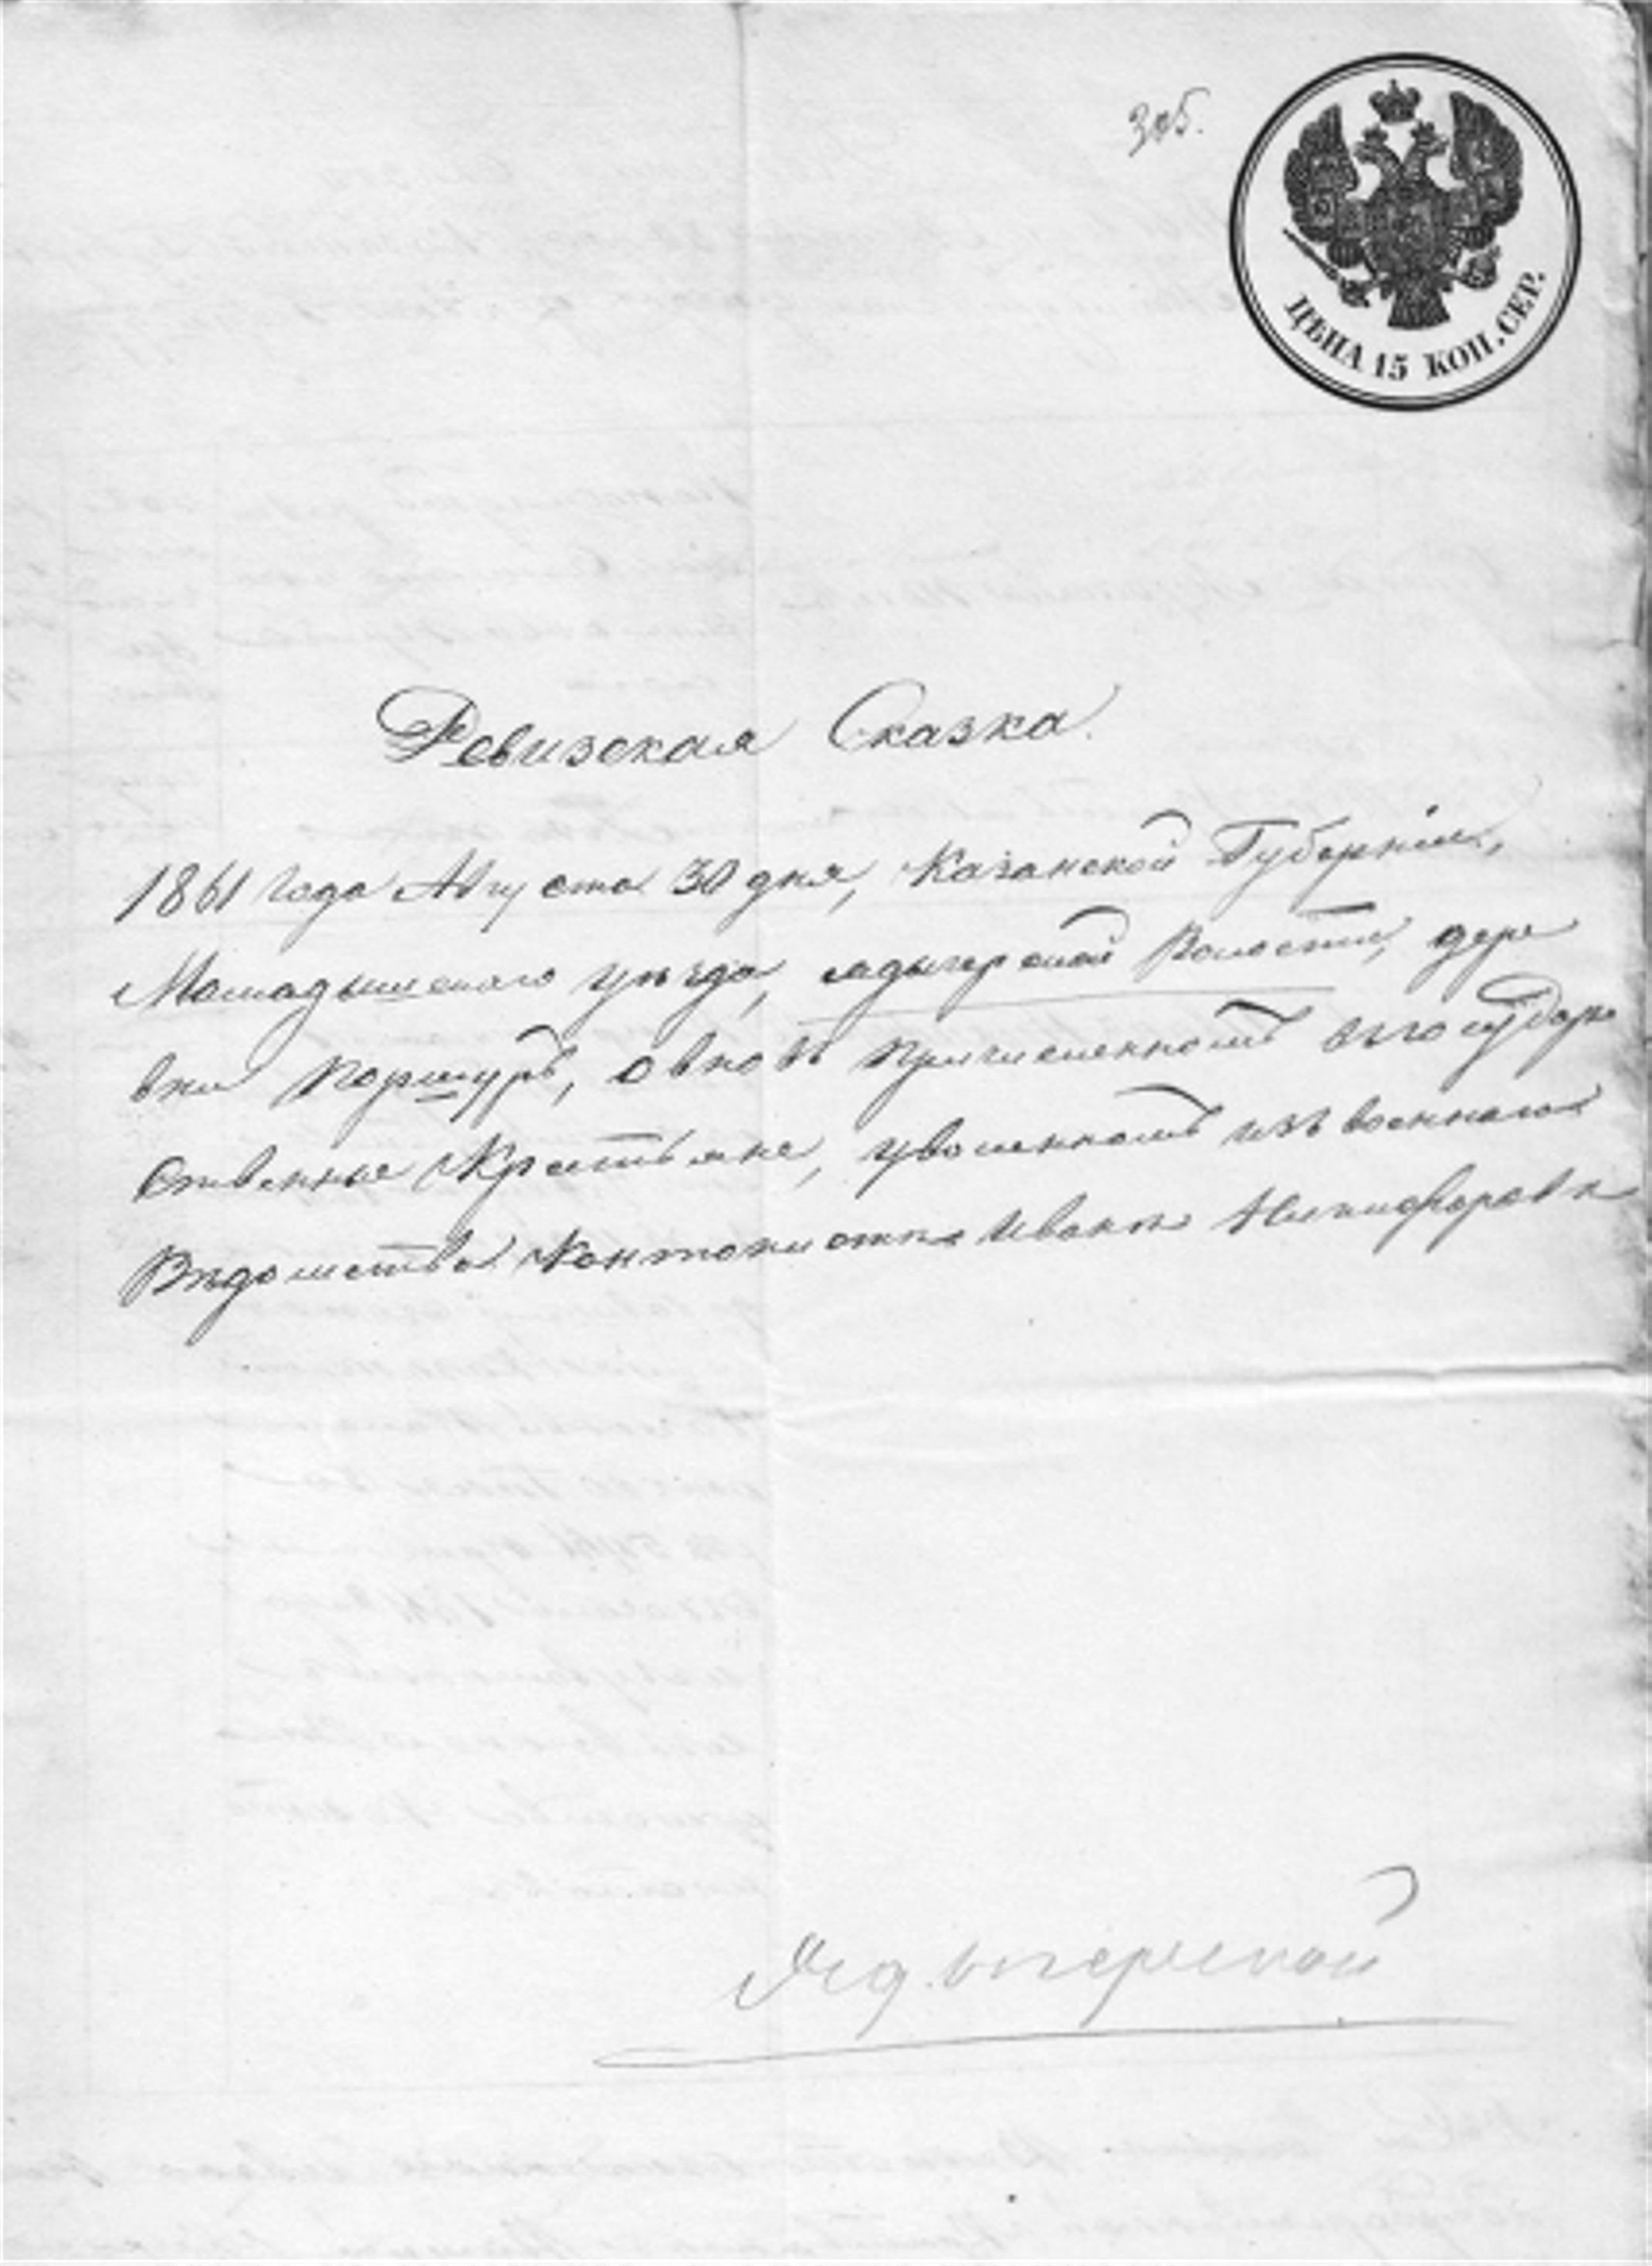 305.
ЦѢНА 15 КОП. СЕР.
Ревизская Сказка.
1861 года Августа 30 дня, Казанской Губерніи,
Мамадышскаго уѣзда, ядыгерской Волости, дере
вни Поршуръ, о вновь причисленномъ въ государ
ственные Крестьяне, уволенномъ изъ военнаго
Вѣдомства Кантонистѣ Иванѣ Никифоровѣ
Ядыгерской